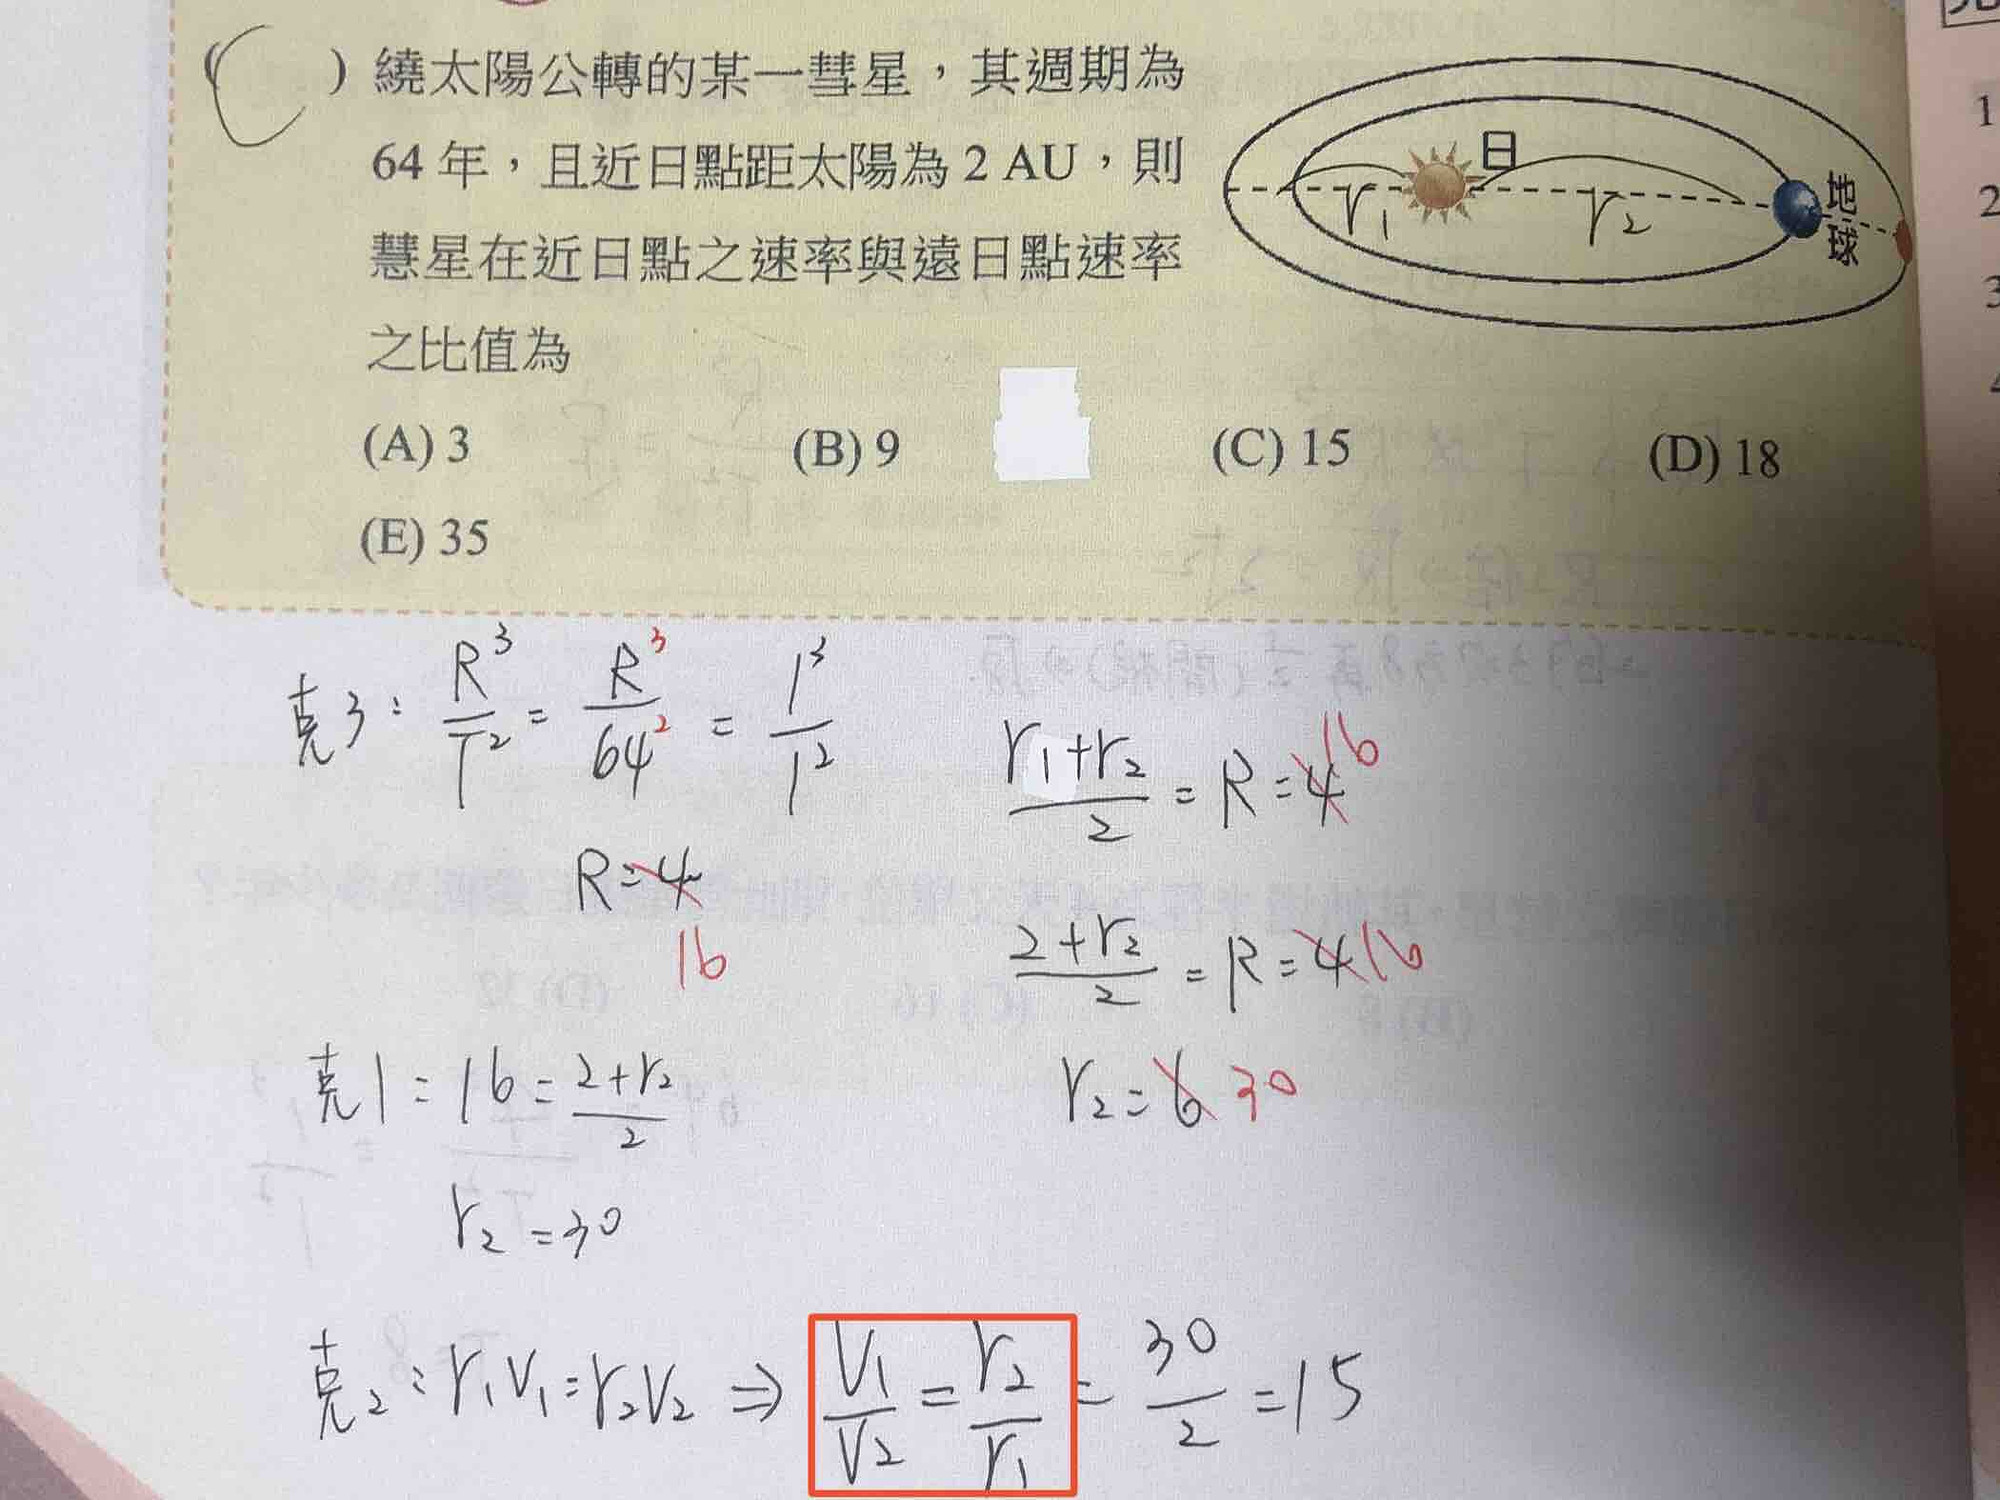 ( C ) 繞太陽公轉的某一彗星，其週期為
64 年，且近日點距太陽為 2 AU，則
慧星在近日點之速率與遠日點速率
之比值為
日
地球
r₁
r₂
(A) 3 (B) 9 (C) 15 (D) 18
(E) 35
克3： R³/T² = R³/64² = 1³/1²
R = 4
16
(r₁+r₂)/2 = R = 4 16
(2+r₂)/2 = R = 4 16
r₂ = 6 30
克1： 16 = (2+r₂)/2
r₂ = 30
克2： r₁V₁ = r₂V₂ ⇒ V₁/V₂ = r₂/r₁ = 30/2 = 15
1
2
3